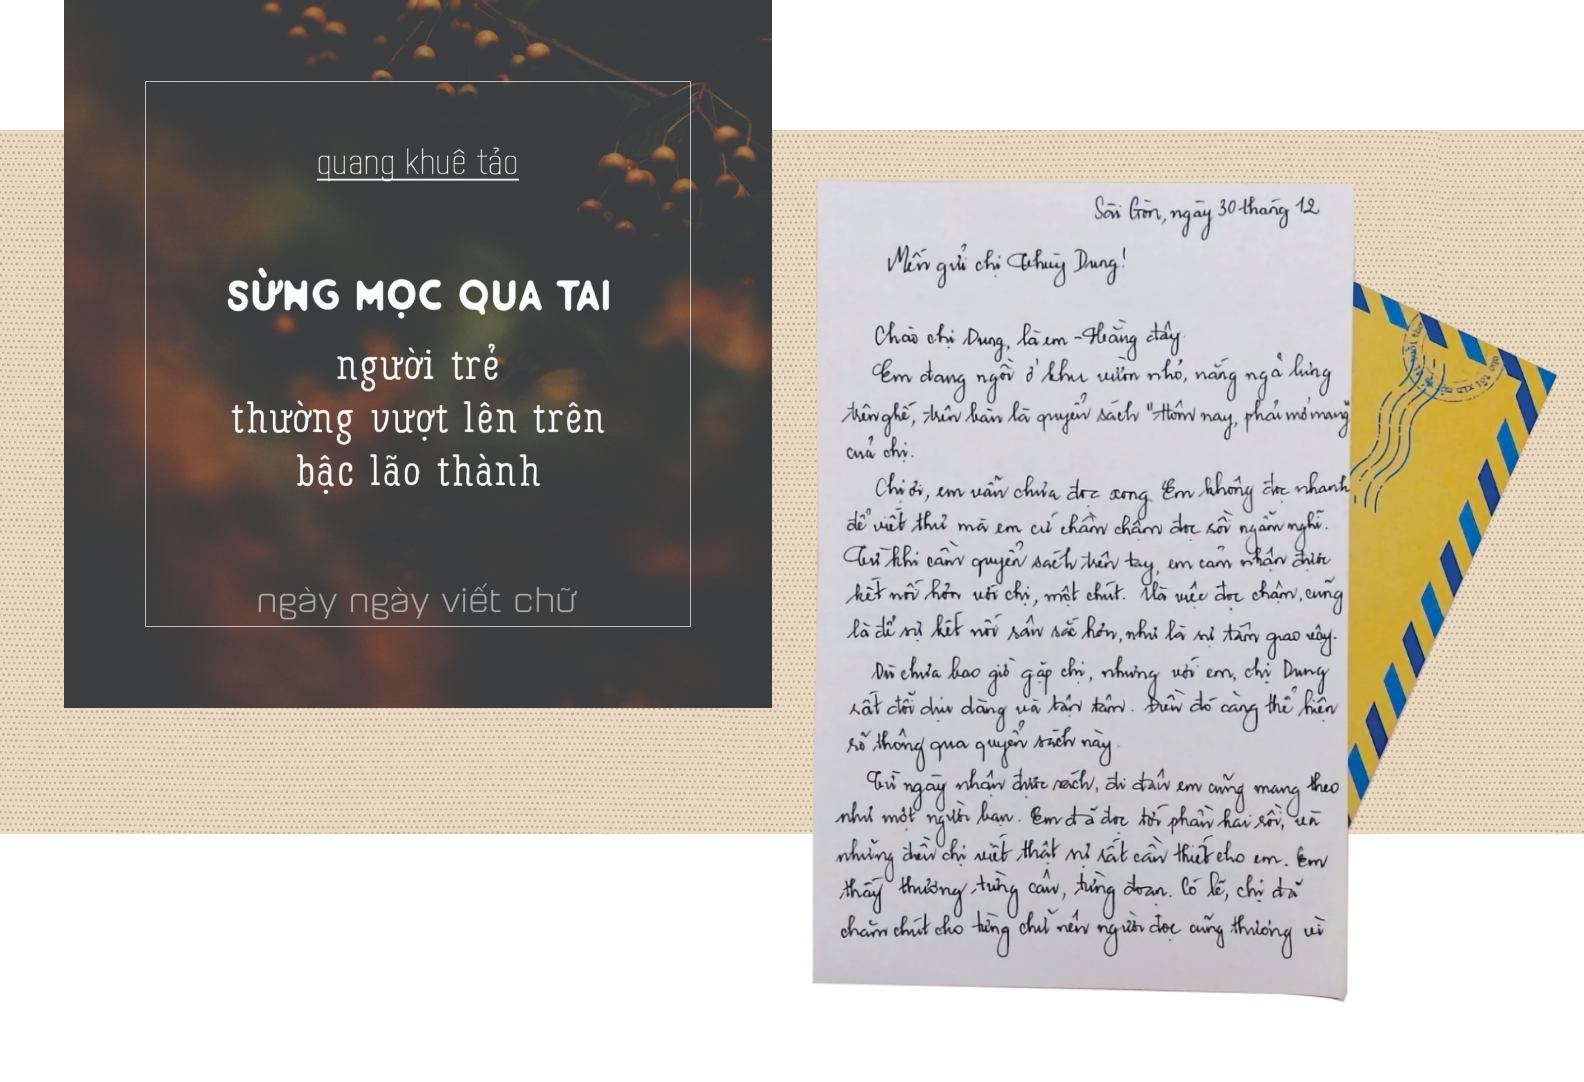 quang khuê tảo
SỪNG MỌC QUA TAI
người trẻ
thường vượt lên trên
bậc lão thành
ngày ngày viết chữ
Sài Gòn, ngày 30 tháng 12
Mến gửi chị Thùy Dung!
Chào chị Dung, là em - Hằng đây.
Em đang ngồi ở khu vườn nhỏ, nắng ngả lưng
trên ghế, trên bàn là quyển sách "Hôm nay, phải mở mang"
của chị.
Chị ơi, em vẫn chưa đọc xong. Em không đọc nhanh
để viết thư mà em cứ chầm chậm đọc rồi ngẫm nghĩ.
Từ khi cầm quyển sách trên tay, em cảm nhận được
kết nối hơn với chị, một chút. Và việc đọc chậm, cũng
là để sự kết nối sâu sắc hơn, như là sự tâm giao vậy.
Dù chưa bao giờ gặp chị, nhưng với em, chị Dung
rất đỗi dịu dàng và tận tâm. Điều đó càng thể hiện
rõ thông qua quyển sách này.
Từ ngày nhận được sách, đi đâu em cũng mang theo
như một người bạn. Em đã đọc tới phần hai rồi, và
những điều chị viết thật sự rất cần thiết cho em. Em
thấy thương từng câu, từng đoạn. Có lẽ, chị đã
chăm chút cho từng chữ nên người đọc cũng thương vì